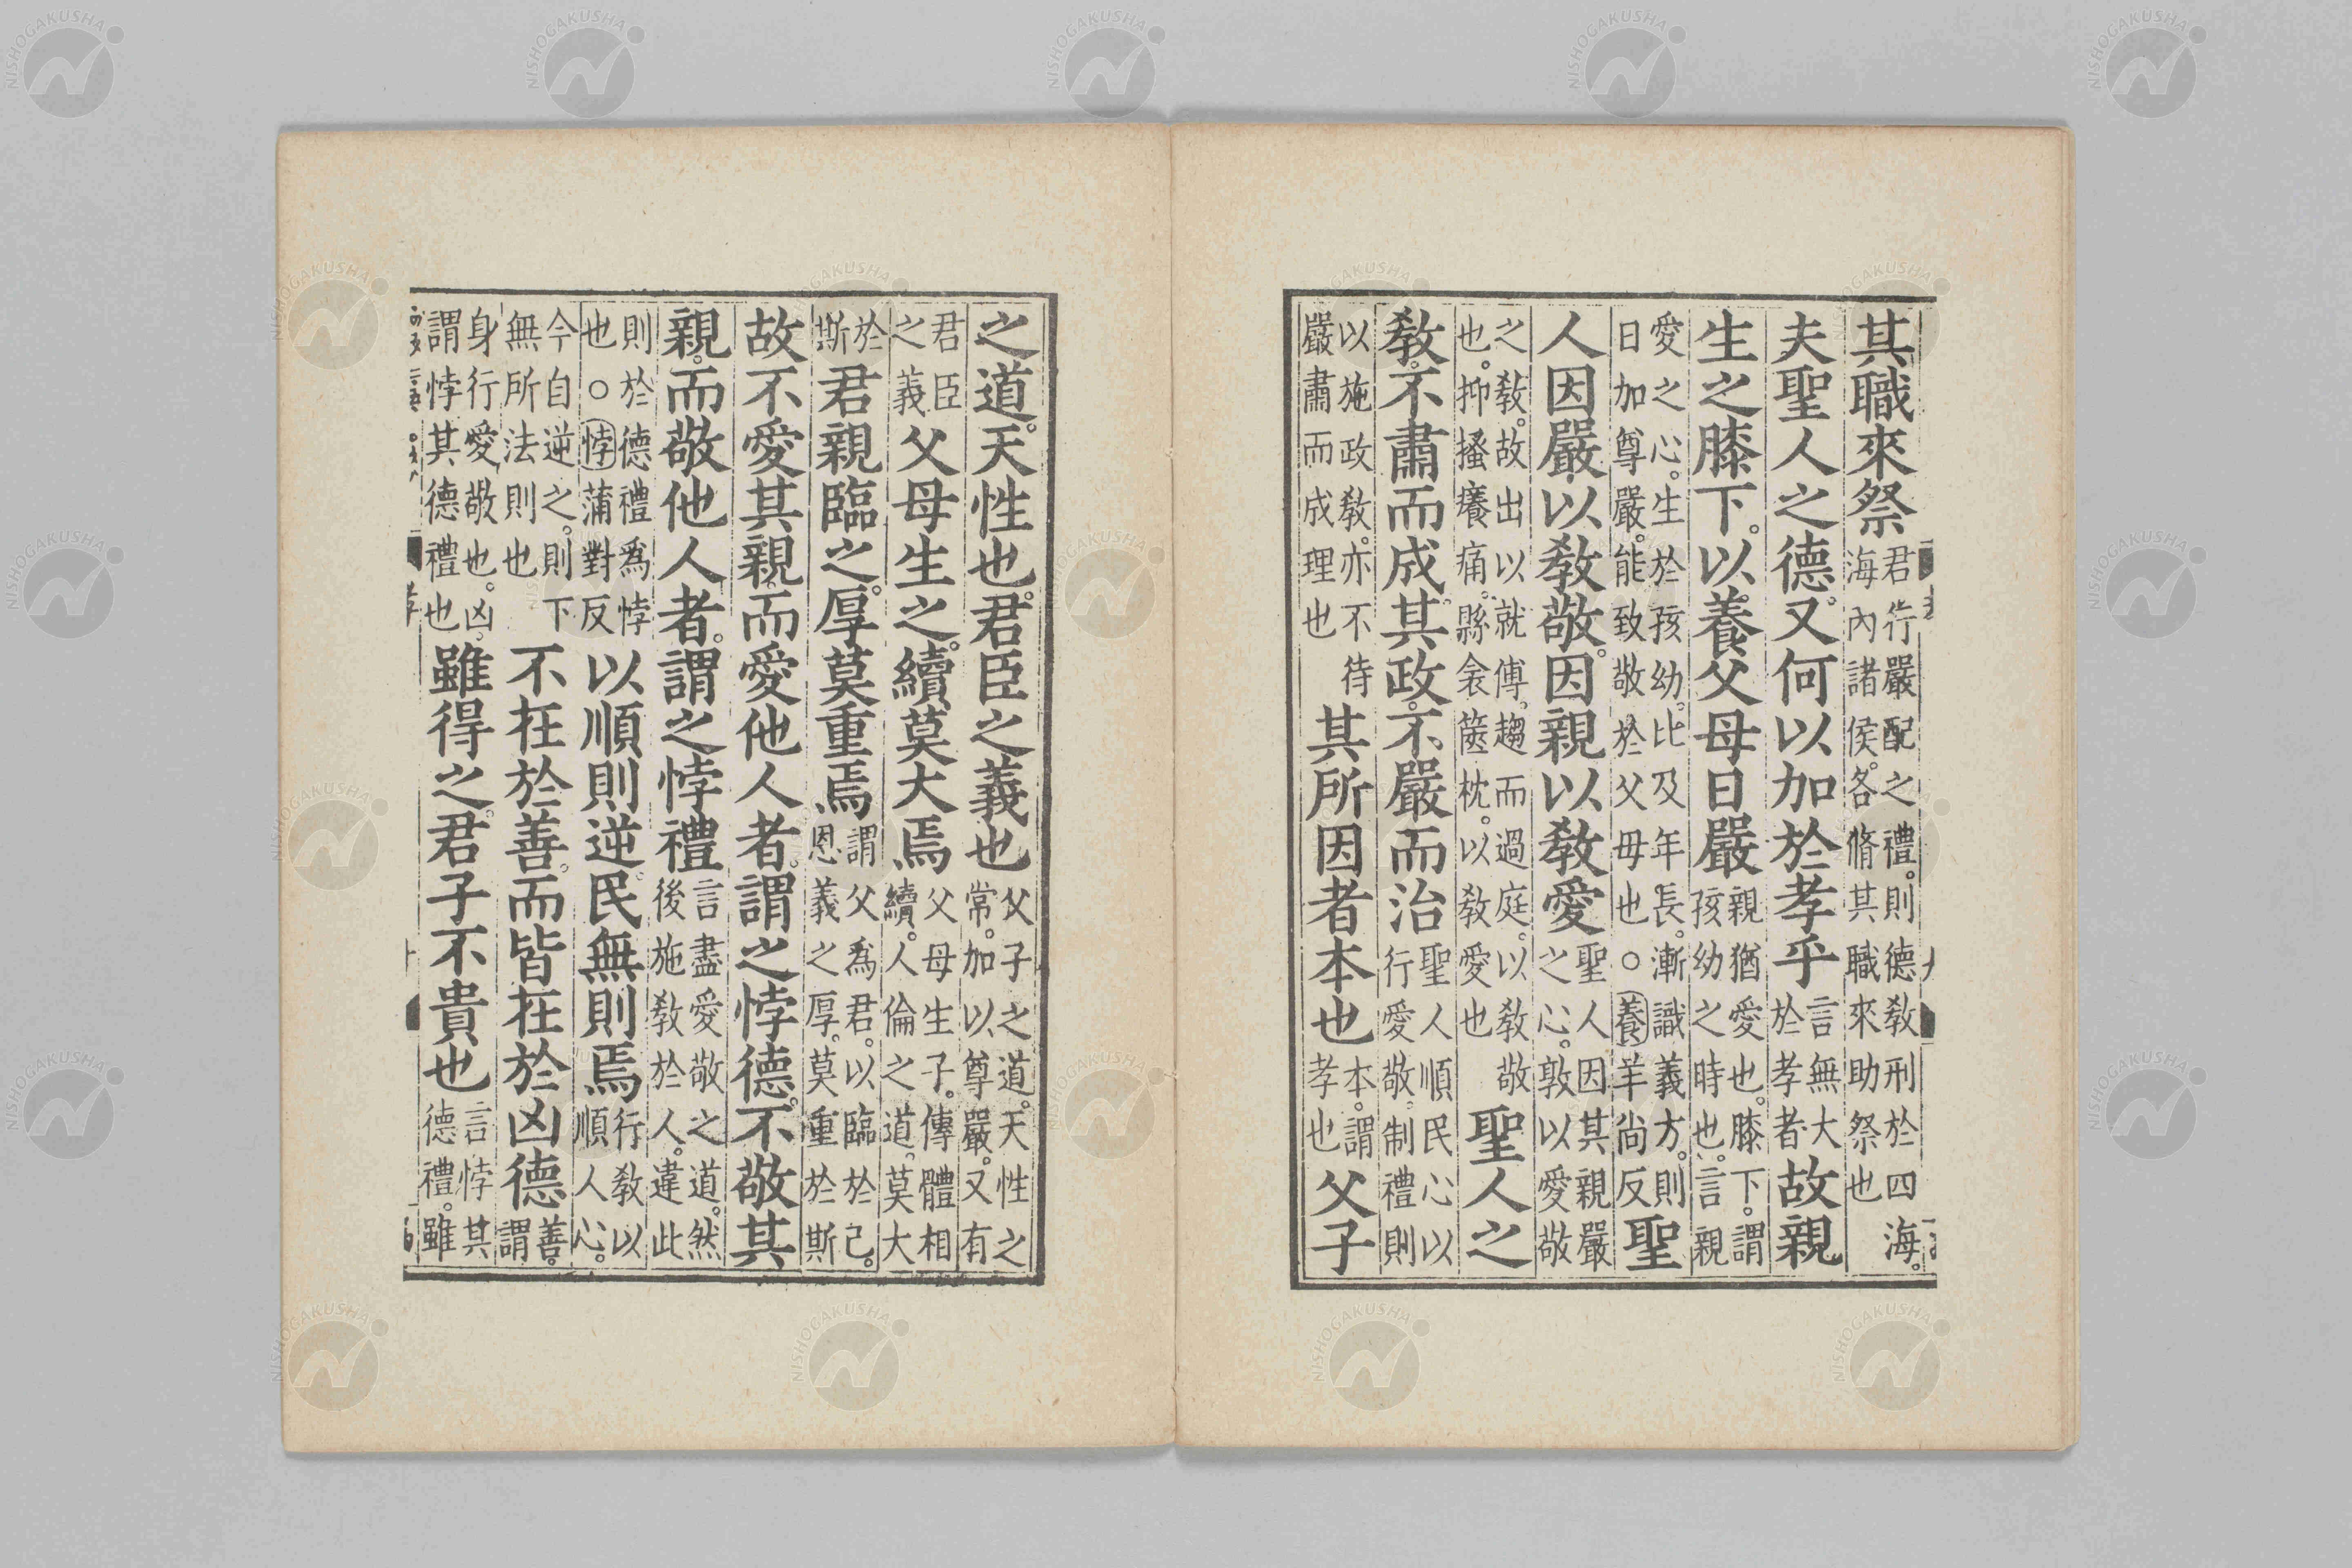 其職來祭君行嚴配之禮。則德教刑於四海。海內諸侯。各脩其職來助祭也
夫聖人之德。又何以加於孝乎言無大於孝者故親
生之膝下。以養父母日嚴親猶愛也。膝下。謂孩幼之時也。言親
愛之心。生於孩幼。比及年長。漸識義方。則日加尊嚴。能致敬於父母也○養羊尚反聖
人因嚴以教敬。因親以教愛聖人因其親嚴之心。敦以愛敬
之教。故出以就傅。趨而過庭。以教敬也。抑搔癢痛。縣衾篋枕。以教愛也聖人之
教。不肅而成。其政。不嚴而治聖人順民心以行愛敬。制禮則
以施政教。亦不待嚴肅而成理也其所因者本也本。謂孝也父子
之道。天性也。君臣之義也父子之道。天性之常。加以尊嚴。又有
君臣之義父母生之。續莫大焉父母生子。傳體相續。人倫之道。莫大
於斯君親臨之。厚莫重焉謂父爲君。以臨於己。恩義之厚。莫重於斯
故不愛其親。而愛他人者。謂之悖德。不敬其
親。而敬他人者。謂之悖禮言盡愛敬之道。然後施教於人。違此
則於德禮爲悖也○悖蒲對反以順則逆。民無則焉行教以順人心。
今自逆之。則下無所法則也不在於善。而皆在於凶德善。謂
身行愛敬也。凶。謂悖其德禮也雖得之。君子不貴也言悖其德禮。雖
NISHOGAKUSHA